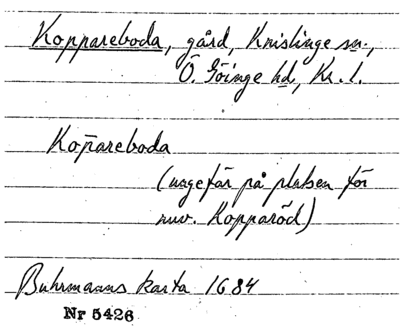 Koppareboda, gård, Knislinge sn.,
Ö. Göinge hd, Kr. l.
Kop̄areboda
(ungefär på platsen för
nuv. Kopparöd)
Buhrmanns karta 1684
Nr 5426